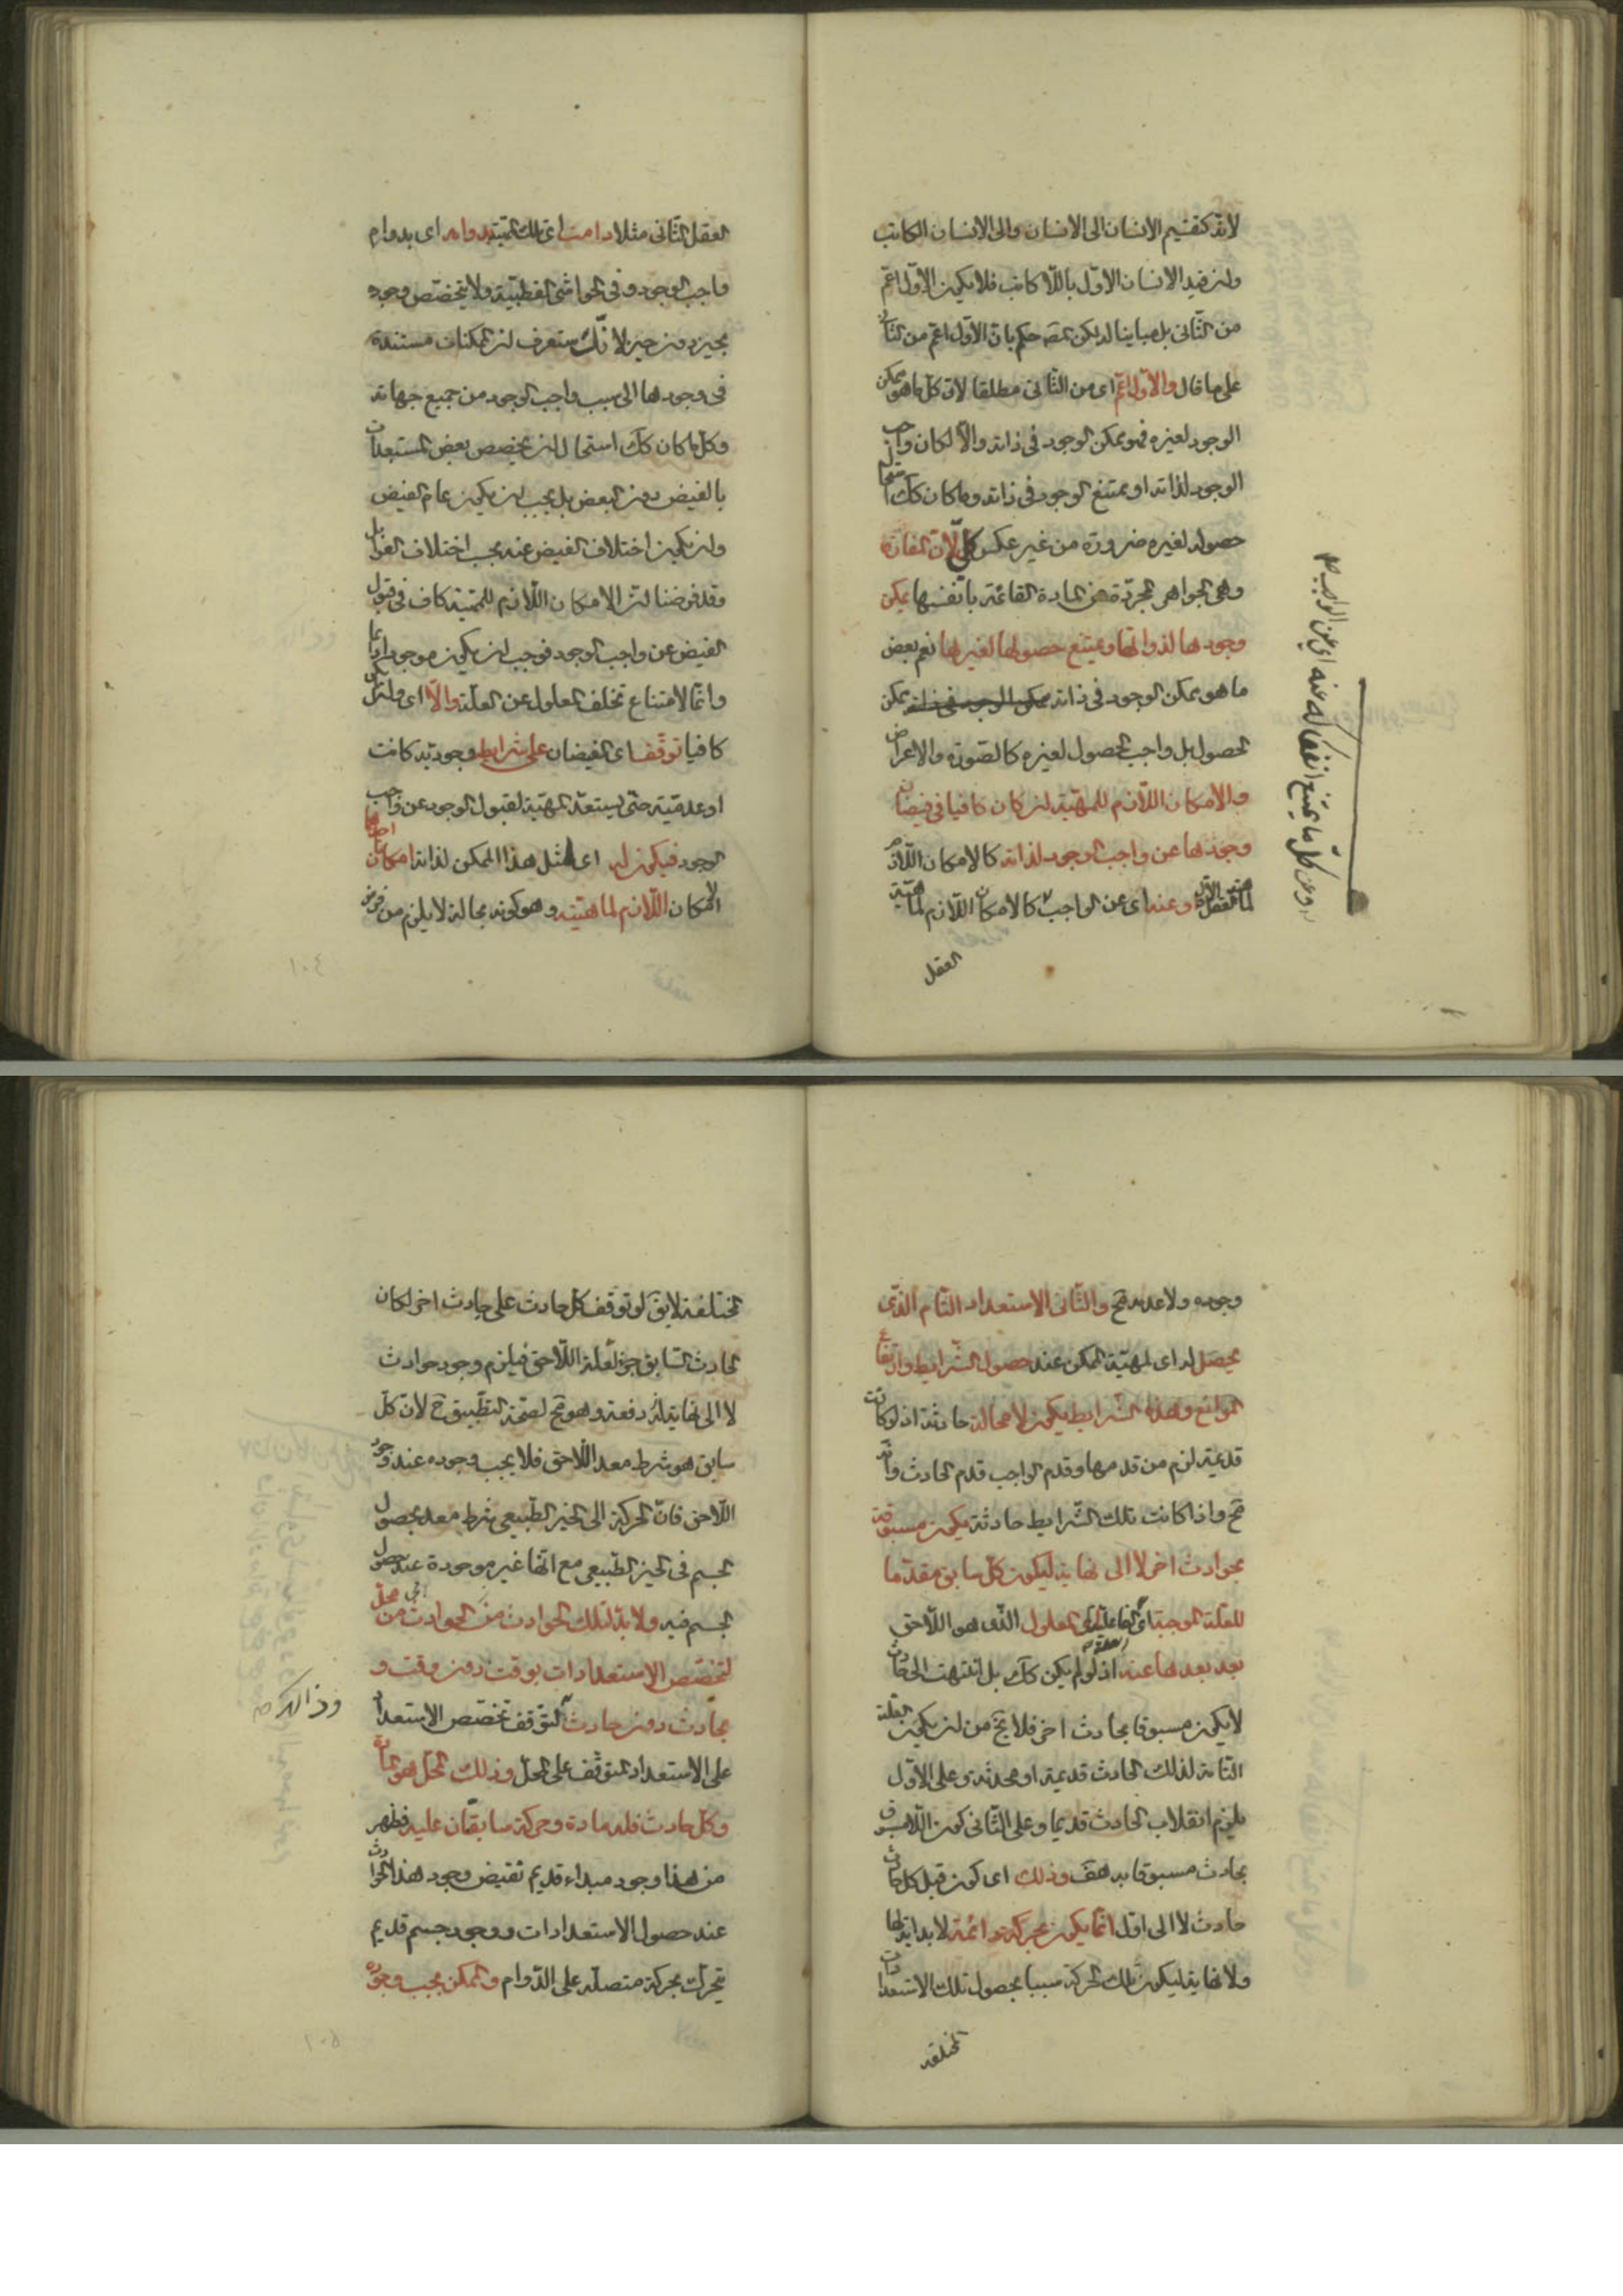 لانه كتقسيم الانسان الى الانسان والى الانسان الكاتب
ولئن قيد الانسان الاول باللا كاتب فلا يكون الاول اعم
من الثانى بل مباينا له لكن المصـ حكم بان الاول اعم من الثانى
على ما قال والاول اعم اى من الثانى مطلقا لان كل ما هو ممكن
الوجود لغيره فهو ممكن الوجود فى ذاته والا لكان واجب
الوجود لذاته او ممتنع الوجود فى ذاته وما كان كك استحال
حصوله لغيره ضرورة من غير عكس كلى لان المفارقة
وهى الجواهر المجردة عن المادة القائمة بانفسها يمكن
وجودها لذواتها ويمتنع حصولها لغيرها نعم بعض
ما هو ممكن الوجود فى ذاته ممكن الوجود فى ذاته ممكن
الحصول بل واجب الحصول لغيره كالصورة والاعراض
والامكان اللازم للمهية ان كان كافيا فى فيضان
وجودها عن واجب الوجود لذاته كالامكان اللازم
لماهية العقل الاول او عنه اى عن الواجب كالامكان اللازم لماهية
العقل
وعن كل ما يمتنع انفكاكه عنه اى عن الواجب
العقل الثانى مثلا دامت اى تلك المهية بدوامه اى بدوام
واجب الوجود وفى الحواشى القطبية ولا يتخصص وجوده
بحين دون حين لانك ستعرف ان الممكنات مستندة
فى وجودها الى سبب واجب الوجود من جميع جهاته
وكل ما كان كك استحال ان يخصص بعض المستعدات
بالفيض دون البعض بل يجب ان يكون عام الفيض
وان يكون اختلاف الفيض عنه بحسب اختلاف القوابل
وقد فرضنا ان الامكان اللازم للمهية كاف فى قبول
الفيض عن واجب الوجود فوجب ان يكون موجودا دائما
وانما لامتناع تخلف المعلول عن العلة والا اى وان لم يكن
كافيا توقف اى الفيضان على شرايط وجودية كانت
او عدمية حتى يستعد المهية لقبول الوجود عن واجب
الوجود فيكون له اى لمثل هذا الممكن لذاته امكانان احدهما
الامكان اللازم لماهيته وهو كونه بحالة لا يلزم من فرض
وجوده ولا عدمه مح والثانى الاستعداد التام الذى
يحصل له اى لمهية الممكن عند حصول الشرايط وارتفاع
الموانع وهذه الشرايط يكون لا محالة حادثة اذ لو كانت
قديمة لزم من قدمها وقدم الواجب قدم الحادث وانه
مح واذا كانت تلك الشرايط حادثة يكون مسبوقة
بحوادث اخر لا الى نهاية ليكون كل سابق مقدما
للعلة الموجبة اى الفاعلية الى المعلول الذى هو اللاحق
بعد بعدها عنه اذ لو لم يكن كك بل انتهت الى حادث
لا يكون مسبوقا بحادث اخر فلا يخ من ان يكون العلة
التامة لذلك الحادث قديمة او محدثة وعلى الاول
يلزم انقلاب الحادث قديما وعلى الثانى كون اللامسبوق
بحادث مسبوقا به هف وذلك اى كون قبل كل حادث
حادث لا الى اول انما يكون بحركة دائمة لا بداية لها
ولا نهاية ليكون تلك الحركة سببا لحصول تلك الاستعدادات
المختلفة
المختلفة لا يق لو توقف كل حادث على حادث اخر لكان
الحادث السابق جزء لعلة اللاحق فيلزم وجود حوادث
لا الى نهاية له دفعة وهو مح لصحة التطبيق ح لان كل
سابق هو شرط معد اللاحق فلا يجب وجوده عند وجود
اللاحق فان الحركة الى الحيز الطبيعى شرط معد لحصول
الجسم فى الحيز الطبيعى مع انها غير موجودة عند حصول
الجسم فيه ولا بد لتلك الحوادث من محل
لتخصص الاستعدادات بوقت دون وقت و
بحادث دون حادث لتوقف تخصص الاستعداد
على الاستعداد المتوقف على المحل وذلك المحل هو المادة
وكل حادث فله مادة وحركة سابقتان عليه فظهر
من هذا وجود مبداء قديم تفيض وجود هذه الحوادث
عند حصول الاستعدادات ووجود جسم قديم
يتحرك بحركة متصلة على الدوام والممكن يجب وجوده